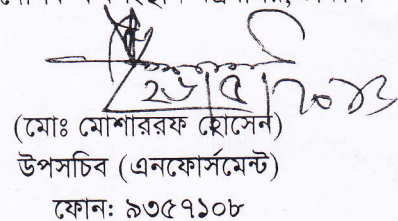 ২৬|৫|২০১৩
(মোঃ মোশাররফ হোসেন)
উপসচিব (এনফোর্সমেন্ট)
ফোন: ৯৩৫৭১০৮